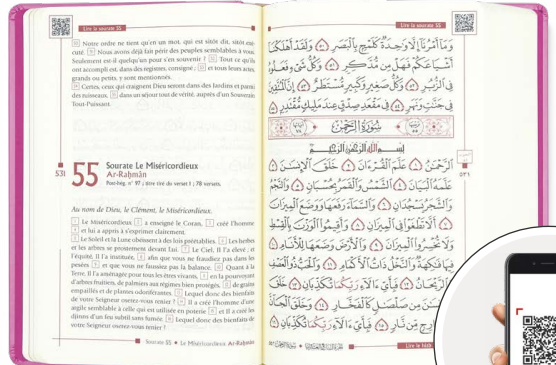 Lire la sourate 55
50 Notre ordre ne tient qu'en un mot, qui est sitôt dit, sitôt exé-
cuté. 51 Nous avons déjà fait périr des peuples semblables à vous.
Seulement est-il quelqu'un pour s'en souvenir ? 52 Tout ce qu'ils
ont accompli est, dans des registres, consigné ; 53 et tous leurs actes,
grands ou petits, y sont mentionnés.
54 Certes, ceux qui craignent Dieu seront dans des Jardins et parmi
des ruisseaux, 55 dans un séjour tout de vérité, auprès d'un Souverain
Tout-Puissant.
531
55
Sourate Le Miséricordieux
Ar-Rahmân
Post-hég. n° 97 ; titre tiré du verset 1 ; 78 versets.
Au nom de Dieu, le Clément, le Miséricordieux.
1 Le Miséricordieux 2 a enseigné le Coran, 3 créé l'homme
4 et lui a appris à s'exprimer clairement.
5 Le Soleil et la Lune obéissent à des lois 6 Les herbes
et les arbres se prosternent devant Lui. 7 Le Ciel, Il l'a élevé ; et
l'équité, Il l'a instituée, 8 afin que vous ne fraudiez pas dans les
pesées 9 et que vous ne faussiez pas la balance. 10 Quant à la
Terre, Il l'a aménagée pour tous les êtres vivants, 11 en la pourvoyant
d'arbres fruitiers, de palmiers aux régimes bien protégés, 12 de grains
empaillés et de plantes odoriférantes. 13 Lequel donc des bienfaits
de votre Seigneur oserez-vous renier ? 14 Il a créé l'homme d'une
argile semblable à celle qui est utilisée en poterie 15 et Il a créé les
djinns d'un feu subtil sans fumée. 16 Lequel donc des bienfaits de
votre Seigneur oserez-vous renier ?
Sourate 55 • Le Miséricordieux Ar-Rahmân
Lire la sourate 55
وَمَا أَمْرُنَا إِلَّا وَاحِدَةٌ كَلَمْحٍ بِالْبَصَرِ ۝ وَلَقَدْ أَهْلَكْنَا
أَشْيَاعَكُمْ فَهَلْ مِن مُّدَّكِرٍ ۝ وَكُلُّ شَيْءٍ فَعَلُوهُ
فِي الزُّبُرِ ۝ وَكُلُّ صَغِيرٍ وَكَبِيرٍ مُّسْتَطَرٌ ۝ إِنَّ الْمُتَّقِينَ
فِي جَنَّاتٍ وَنَهَرٍ ۝ فِي مَقْعَدِ صِدْقٍ عِندَ مَلِيكٍ مُّقْتَدِرٍ ۝
سُورَةُ الرَّحْمَٰن
بِسْمِ اللَّهِ الرَّحْمَٰنِ الرَّحِيمِ
الرَّحْمَٰنُ ۝ عَلَّمَ الْقُرْءَانَ ۝ خَلَقَ الْإِنسَٰنَ ۝
عَلَّمَهُ الْبَيَانَ ۝ الشَّمْسُ وَالْقَمَرُ بِحُسْبَانٍ ۝ وَالنَّجْمُ
وَالشَّجَرُ يَسْجُدَانِ ۝ وَالسَّمَاءَ رَفَعَهَا وَوَضَعَ الْمِيزَانَ
۝ أَلَّا تَطْغَوْا فِي الْمِيزَانِ ۝ وَأَقِيمُوا الْوَزْنَ بِالْقِسْطِ
وَلَا تُخْسِرُوا الْمِيزَانَ ۝ وَالْأَرْضَ وَضَعَهَا لِلْأَنَامِ ۝
فِيهَا فَٰكِهَةٌ وَالنَّخْلُ ذَاتُ الْأَكْمَامِ ۝ وَالْحَبُّ ذُو الْعَصْفِ
وَالرَّيْحَانُ ۝ فَبِأَيِّ ءَالَاءِ رَبِّكُمَا تُكَذِّبَانِ ۝ خَلَقَ
الْإِنسَٰنَ مِن صَلْصَٰلٍ كَالْفَخَّارِ ۝ وَخَلَقَ الْجَانَّ
مِن مَّارِجٍ مِّن نَّارٍ ۝ فَبِأَيِّ ءَالَاءِ رَبِّكُمَا تُكَذِّبَانِ ۝
٥٣١
Lire le hizb